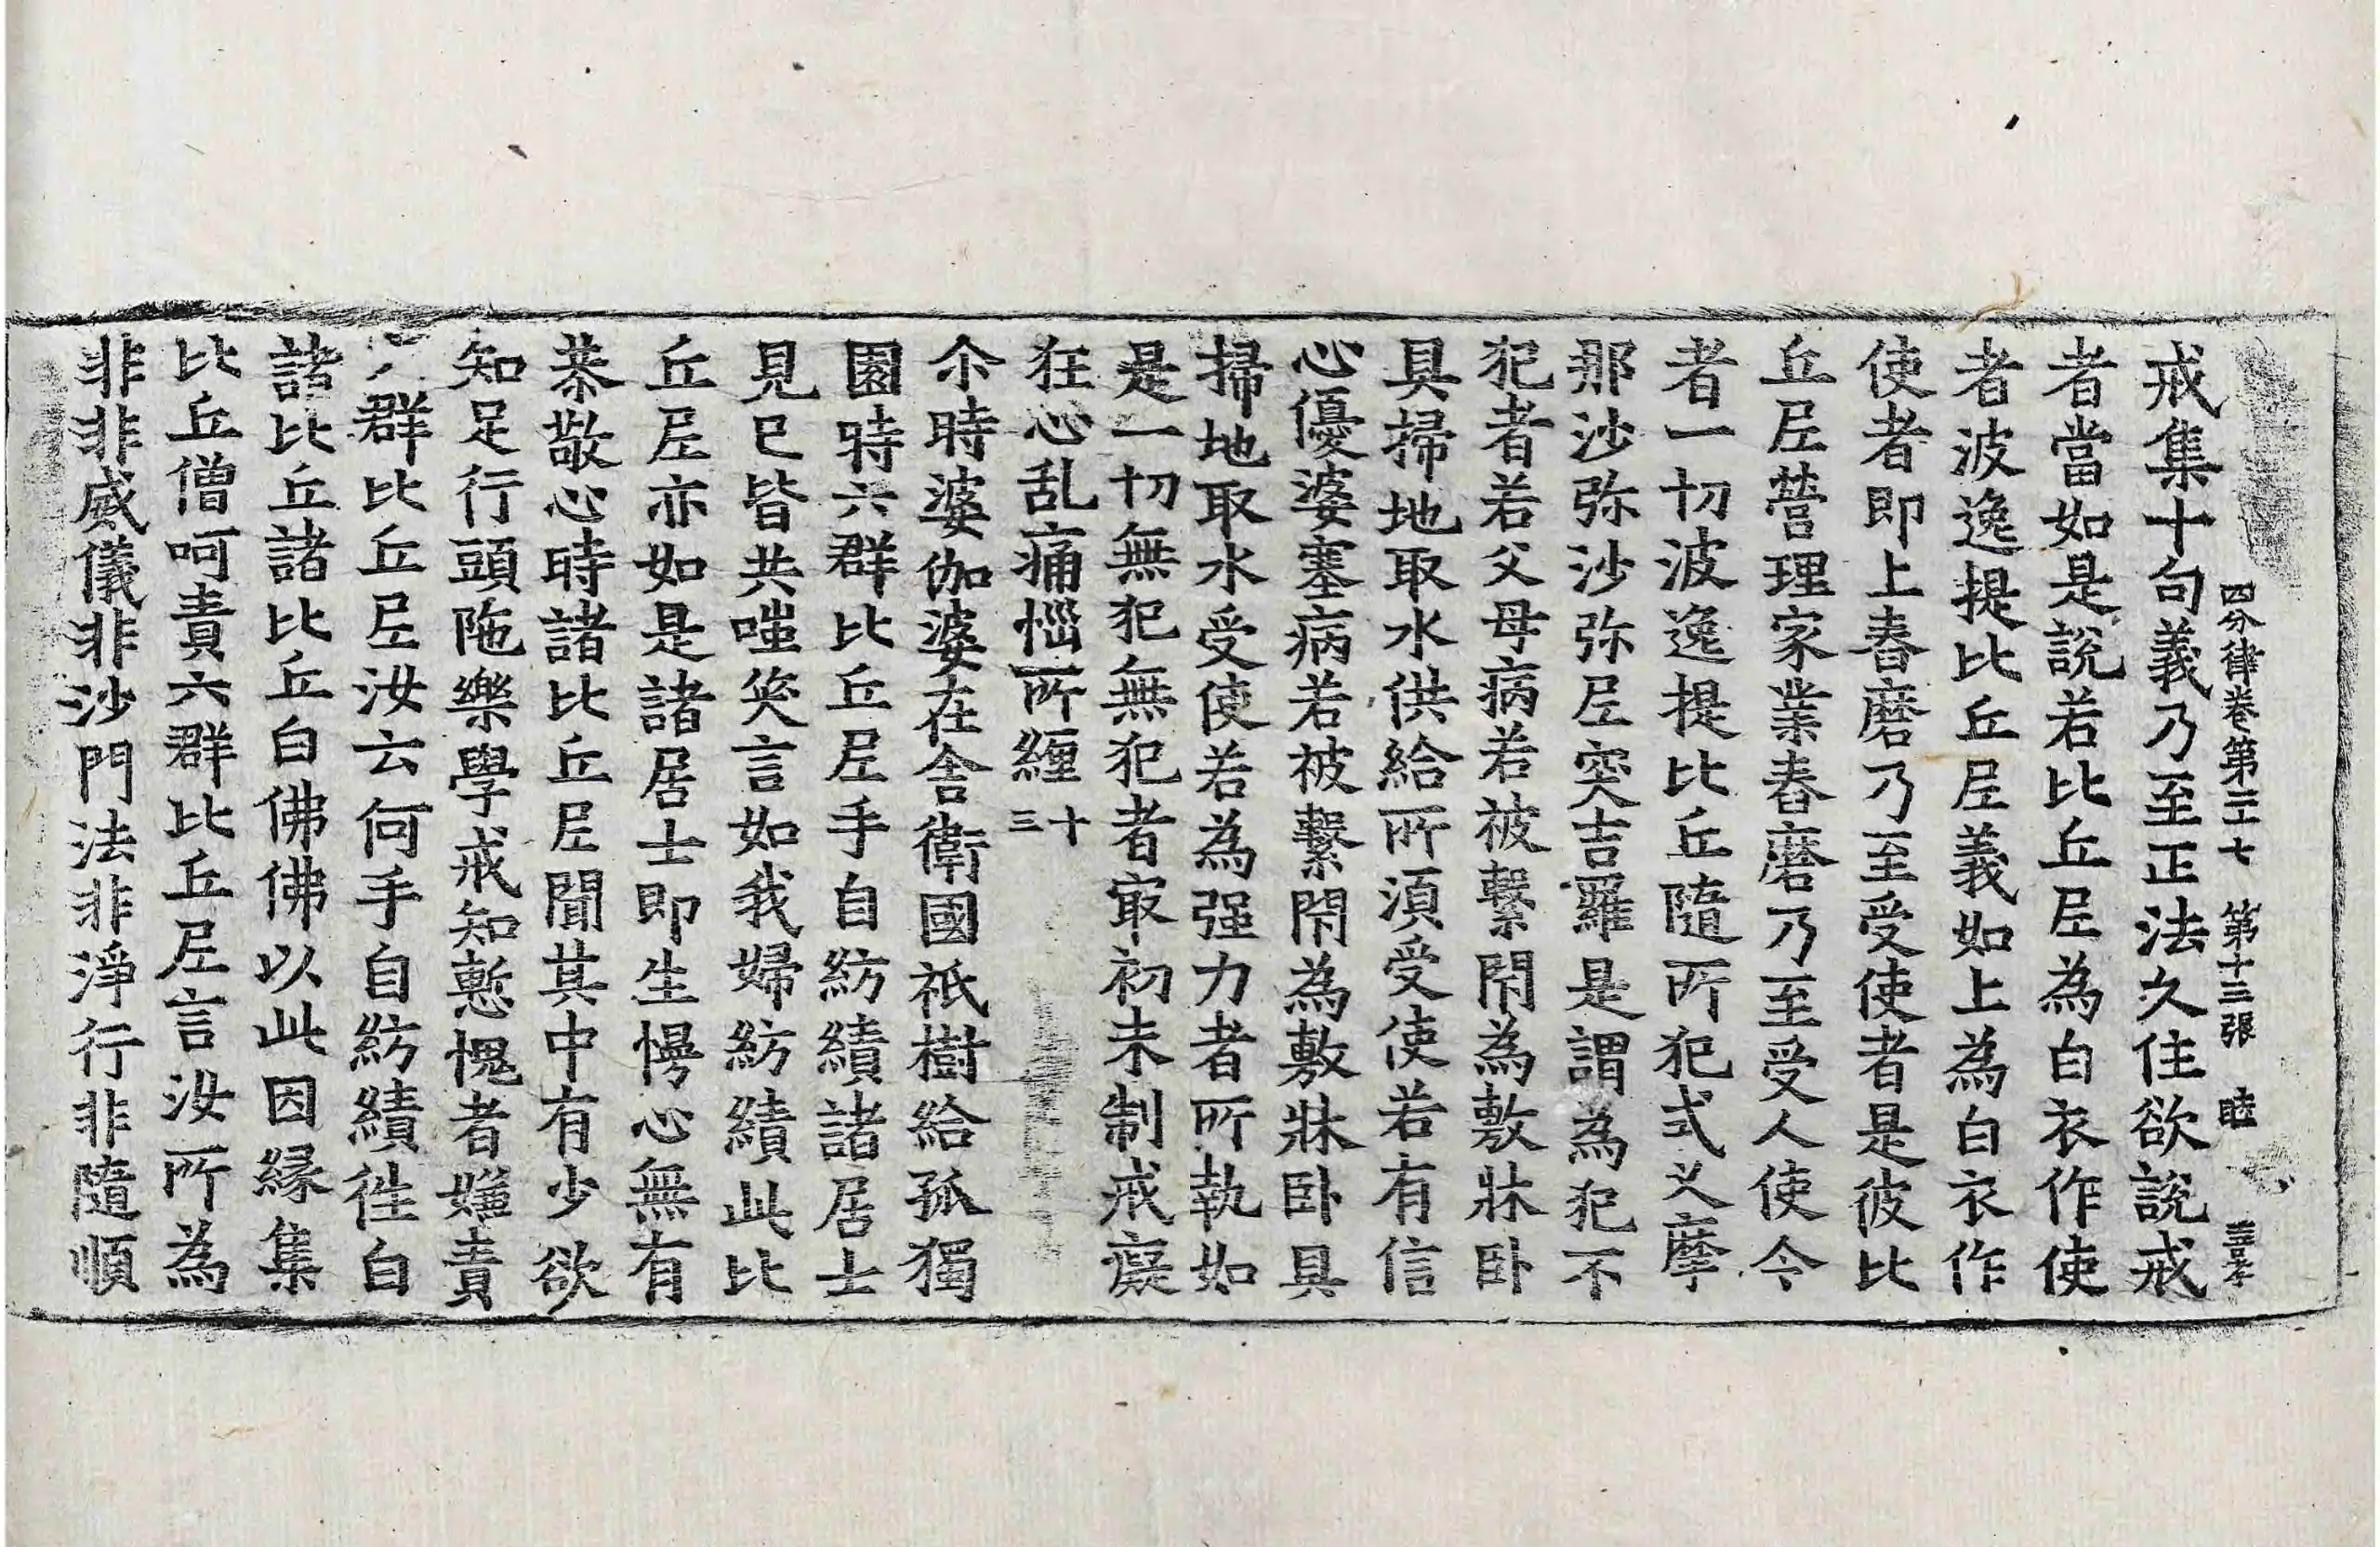 四分律卷第二十七 第十三張 睦
戒集十句義乃至正法久住欲說戒
者當如是說若比丘尼為白衣作使
者波逸提比丘尼義如上為白衣作
使者即上舂磨乃至受使者是彼比
丘尼營理家業舂磨乃至受人使令
者一切波逸提比丘隨所犯式叉摩
那沙弥沙弥尼突吉羅是謂為犯不
犯者若父母病若被繫閇為敷牀卧
具掃地取水供給所須受使若有信
心優婆塞病若被繫閇為敷牀卧具
掃地取水受使若為强力者所執如
是一切無犯無犯者㝡初未制戒癡
狂心乱痛惱所纏 十三
尒時婆伽婆在舍衛國祇樹給孤獨
園時六群比丘尼手自紡績諸居士
見已皆共嗤笑言如我婦紡績此比
丘尼亦如是諸居士即生慢心無有
恭敬心時諸比丘尼聞其中有少欲
知足行頭陁樂學戒知慙愧者嫌責
群比丘尼汝云何手自紡績往白
諸比丘諸比丘白佛佛以此因緣集
比丘僧呵責六群比丘尼言汝所為
非非威儀非沙門法非淨行非隨順